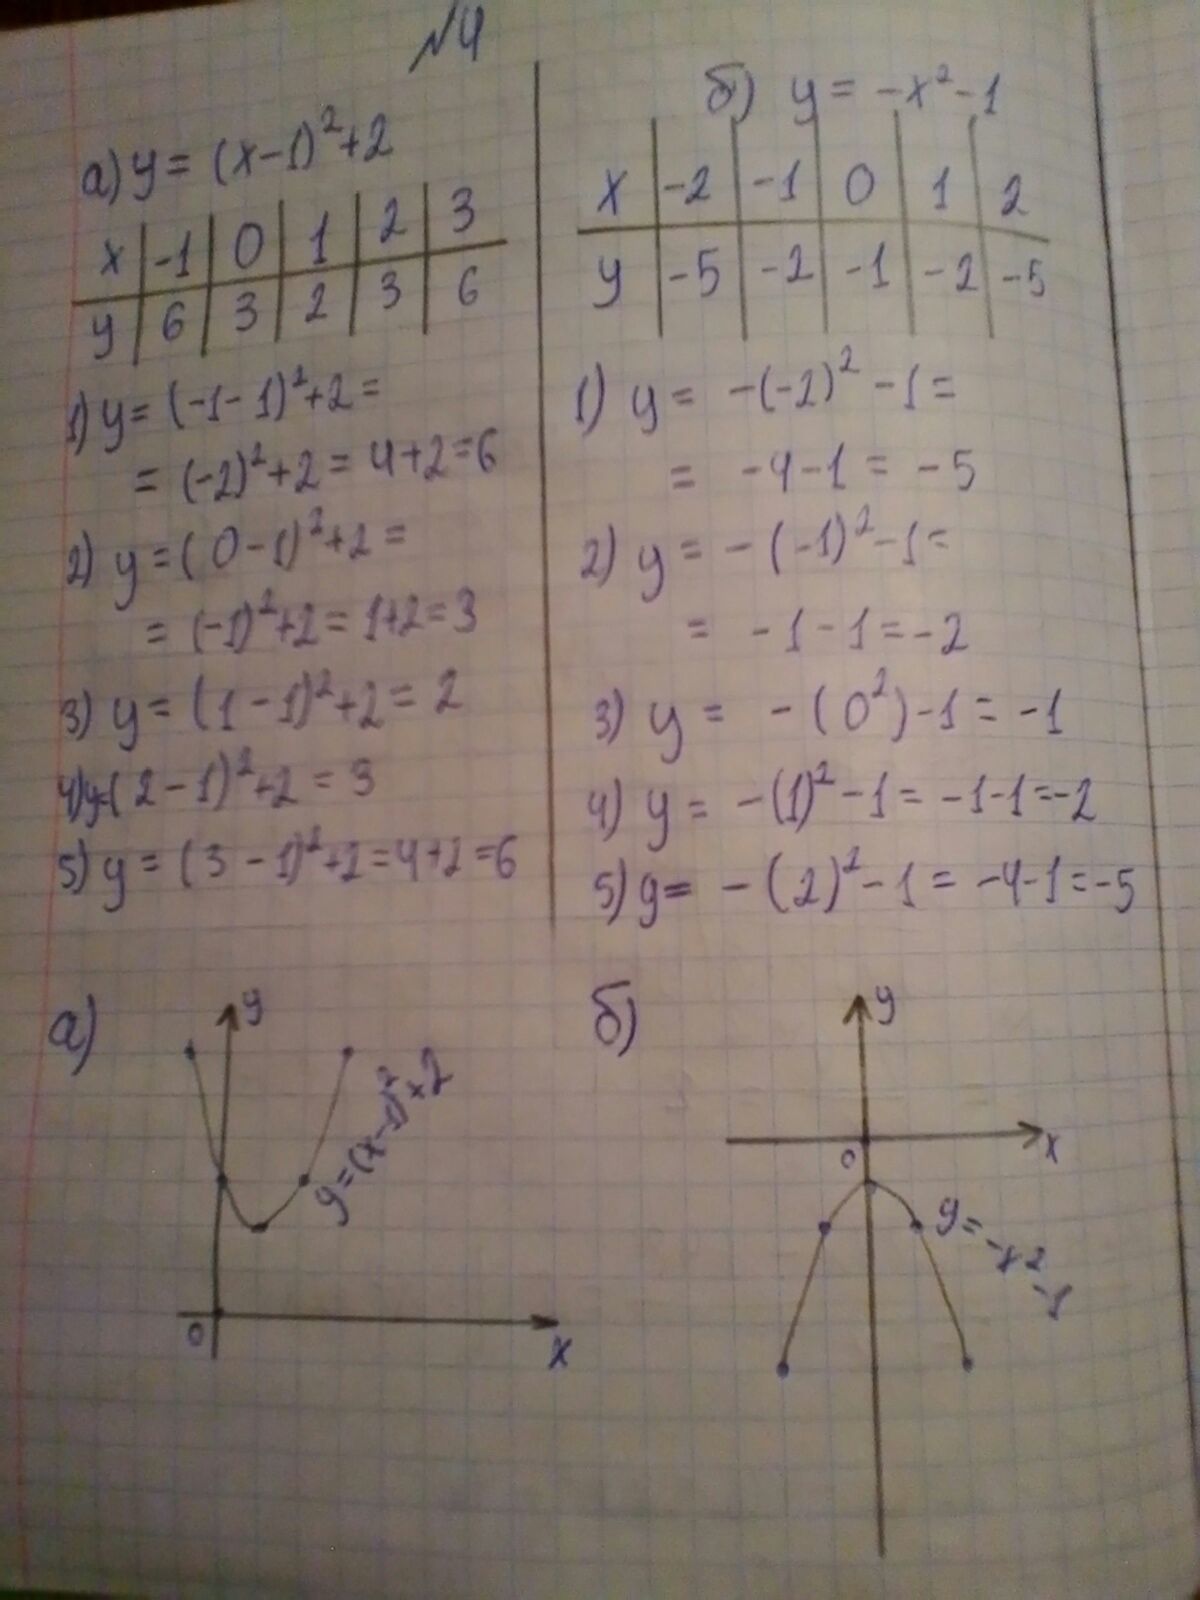 №4
а) y = (x-1)²+2
x | -1 | 0 | 1 | 2 | 3
y | 6 | 3 | 2 | 3 | 6
1) y = (-1-1)²+2 =
= (-2)²+2 = 4+2=6
2) y = (0-1)²+2 =
= (-1)²+2 = 1+2=3
3) y = (1-1)²+2 = 2
4) y=(2-1)²+2 = 3
5) y = (3-1)²+2=4+2=6
б) y = -x²-1
x | -2 | -1 | 0 | 1 | 2
y | -5 | -2 | -1 | -2 | -5
1) y = -(-2)²-1 =
= -4-1 = -5
2) y = -(-1)²-1 =
= -1-1=-2
3) y = -(0²)-1 = -1
4) y = -(1)²-1 = -1-1=-2
5) y = -(2)²-1 = -4-1=-5
а)
y
y=(x-1)²+2
0
x
б)
y
0
x
y=
-x2
-1